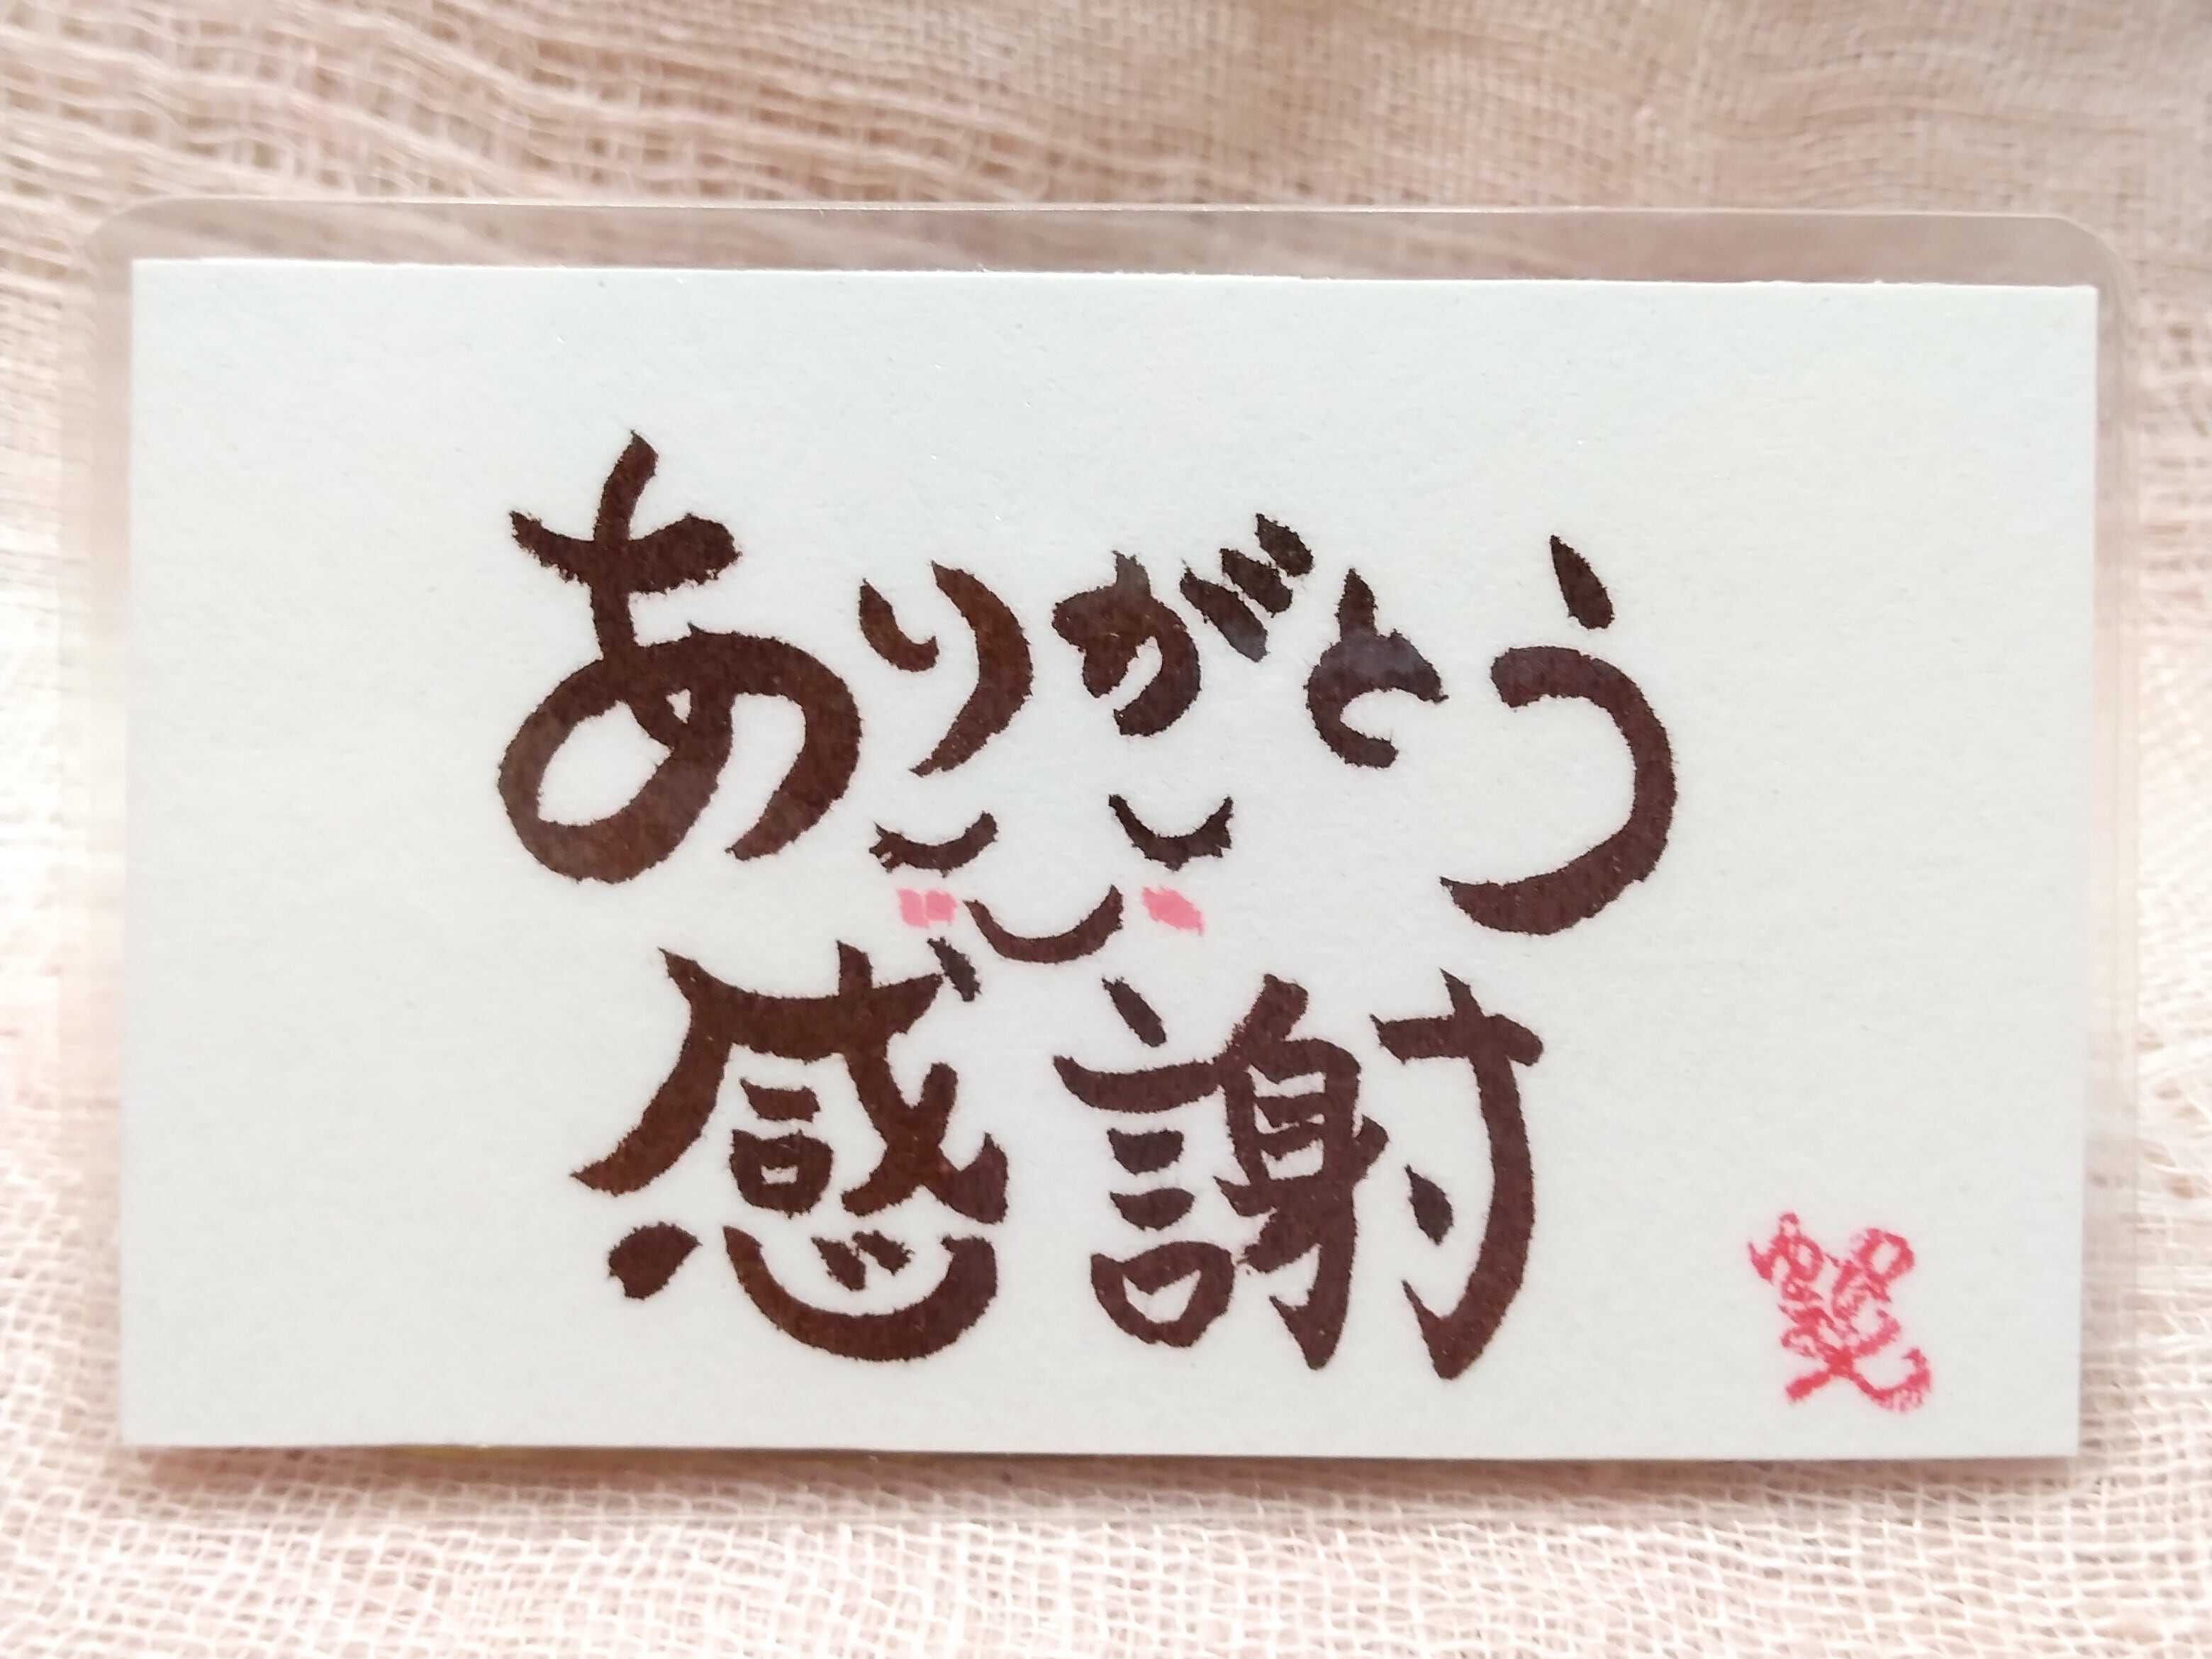 ありがとう
感謝